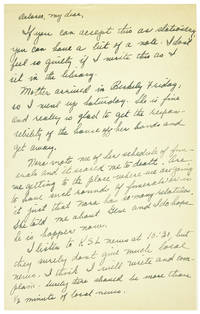 dearest, my dear,
If you can accept this as stationery
you can have a bit of a note. I don't
feel so guilty if I write this as I
sit in the library.
Mother arrived in Friday,
so I went up Saturday. She is fine
and really is glad to get the respon-
sibility of the house off her hands and
get away.
Nora wrote me of her schedule of fun-
erals and it scared me to death. Are
we getting to the place where we are going
to have such rounds of funerals or is
it just that Nora has so many relatives.
She told me about Gene and I do hope
he is happy now.
I listen to K.S.L. news at 10:30, but
they surely don't give much local
news. I think I will write and com-
plain. Surely there should be more than
½ minute of local news.